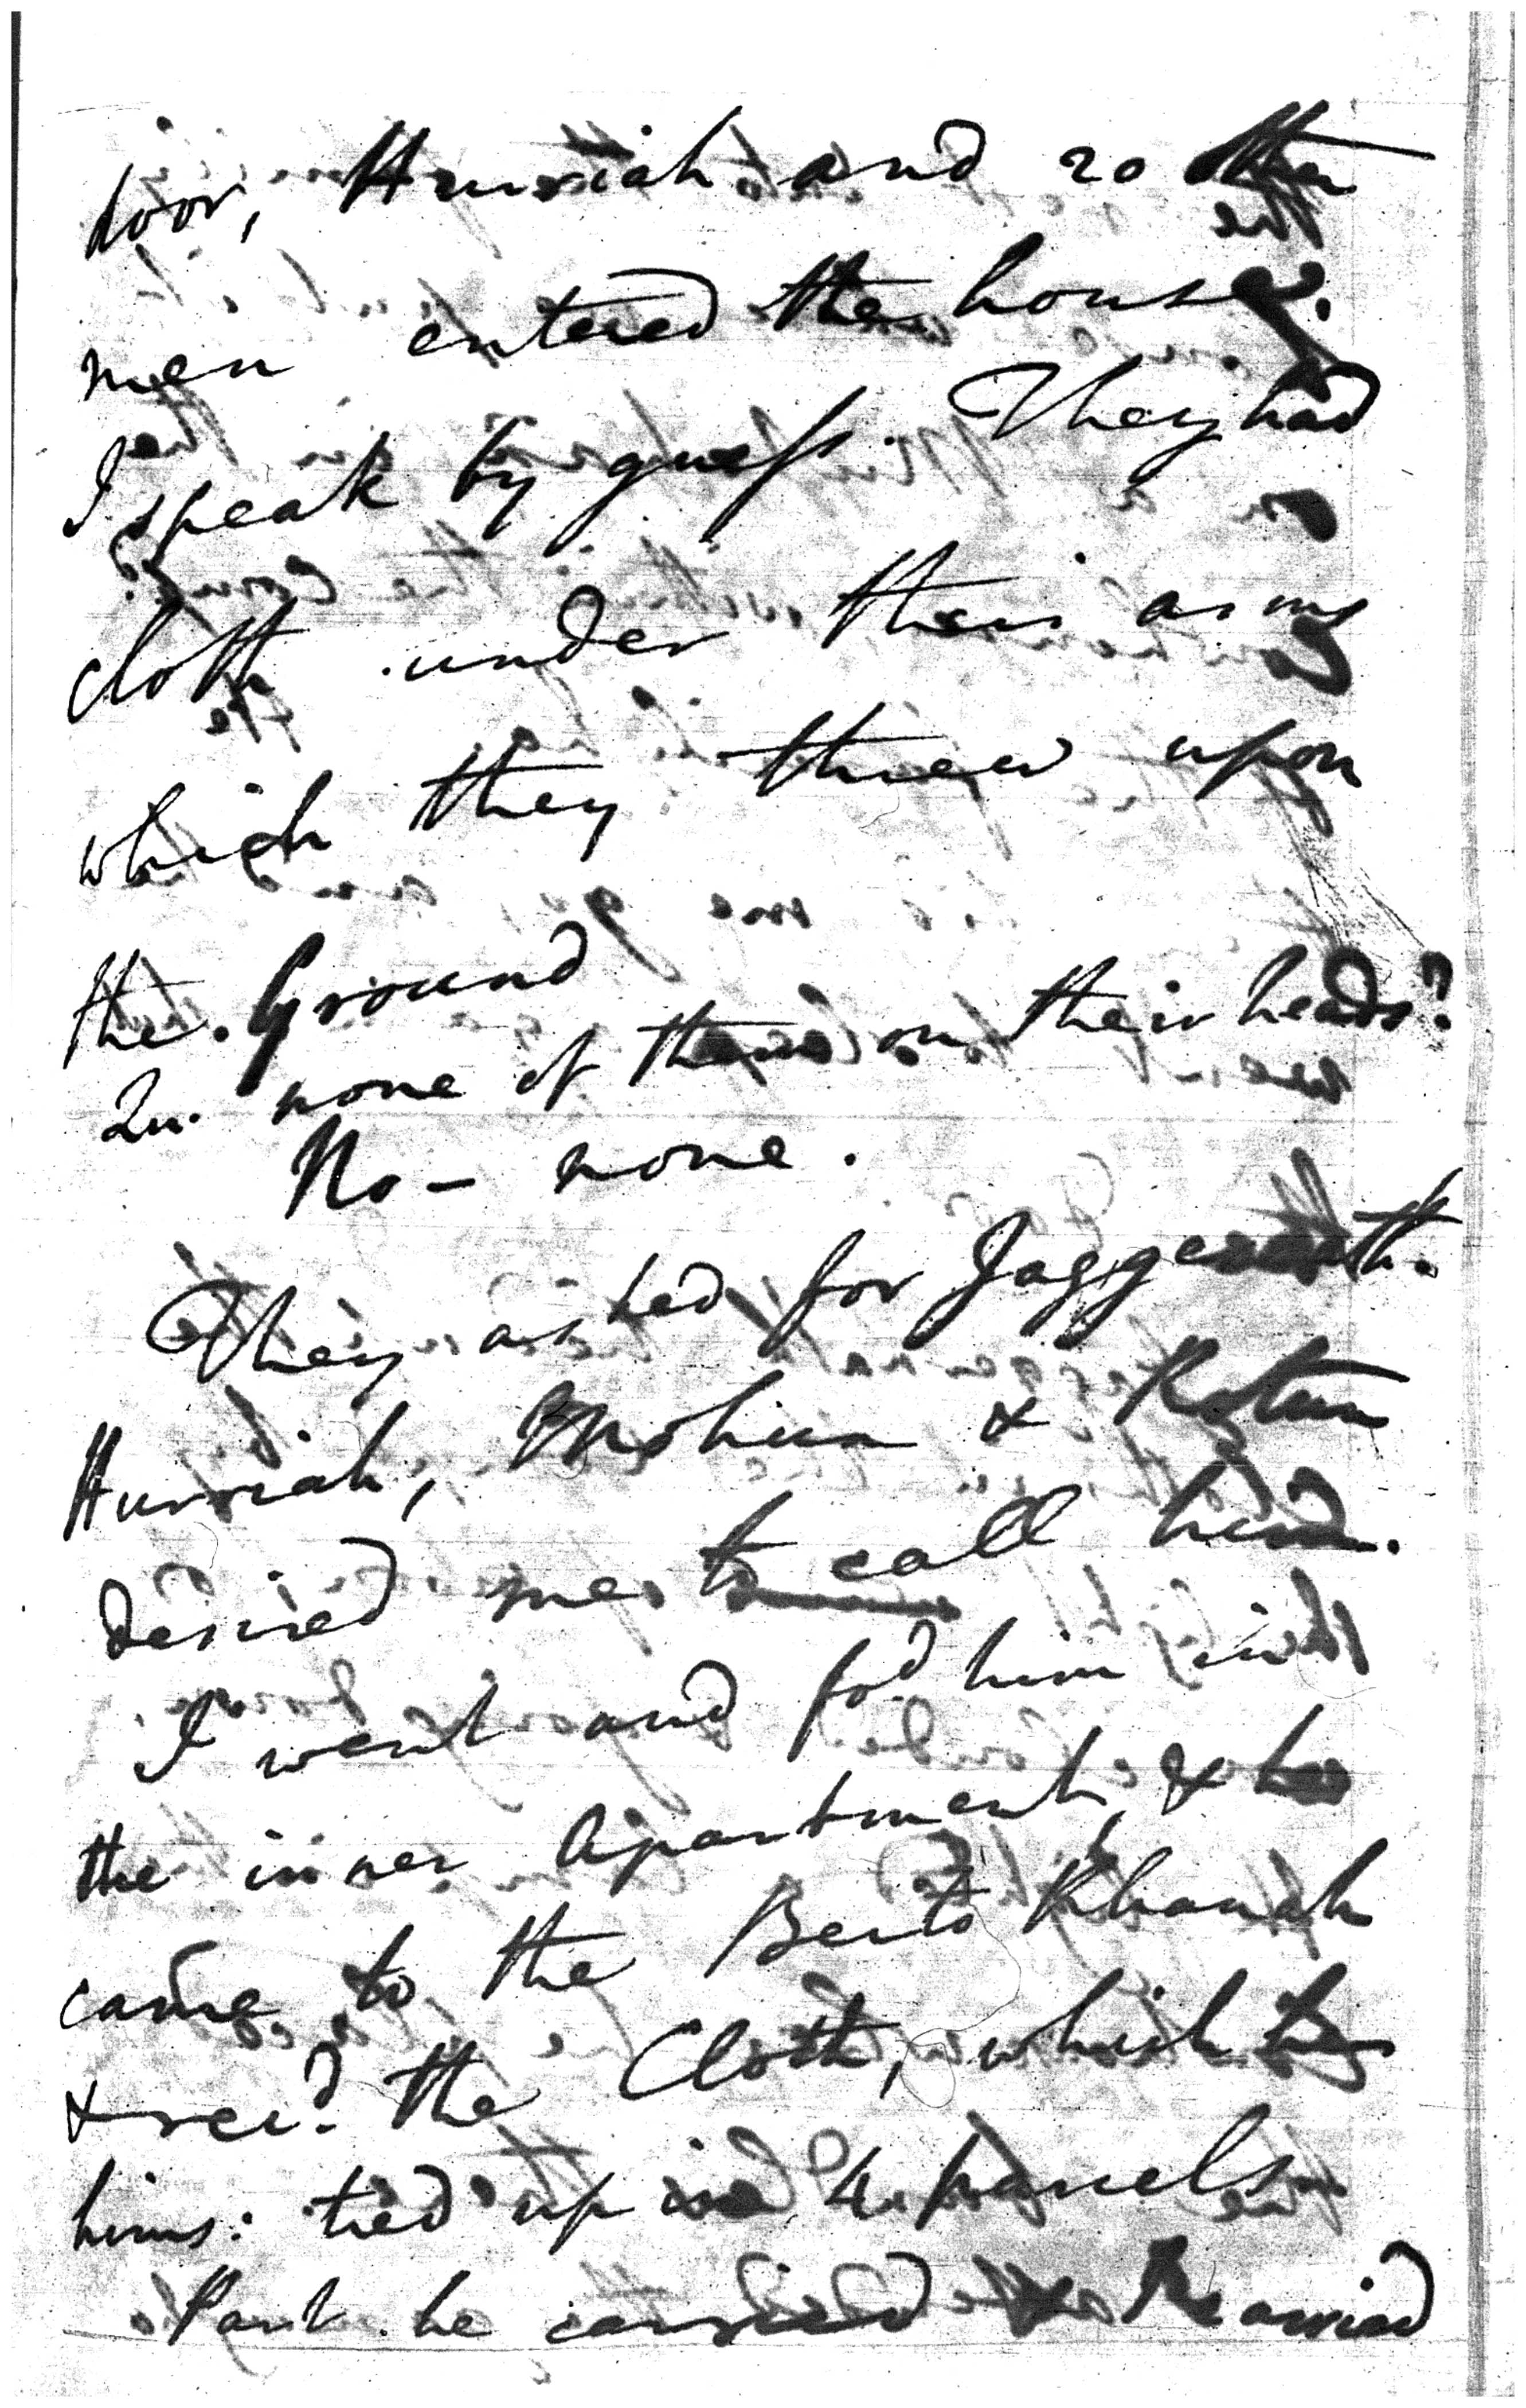 door, Hurriah and 20 other
men entered the house.
I speak by guess. They had
cloth under their arms
which they threw upon
the Ground
Qu. none of them on their heads?
No – none.
They asked for Jaggernath.
Hurriah, Mohun & Rotun
desired me to call him.
I went and fod him in
the inner Apartment, & he
came to the Khanah
& recd. the Cloth, which he
hims: tied up in 4 parcels
Part he carried & I carried